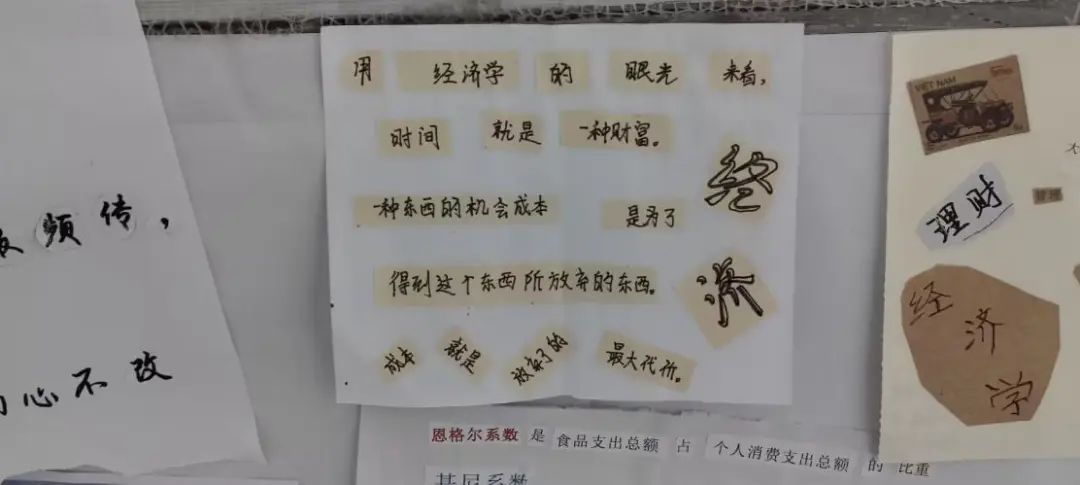 频传，
心不改
用 经济学 的 眼光 来看，
时间 就是 一种财富。
一种东西的机会成本 是为了
得到这个东西所放弃的东西。
成本 就是 放弃了的 最大代价。
经济
恩格尔系数 是 食品支出总额 占 个人消费支出总额 的 比重
基尼系数
VIET NAM
理财
管理
经济学